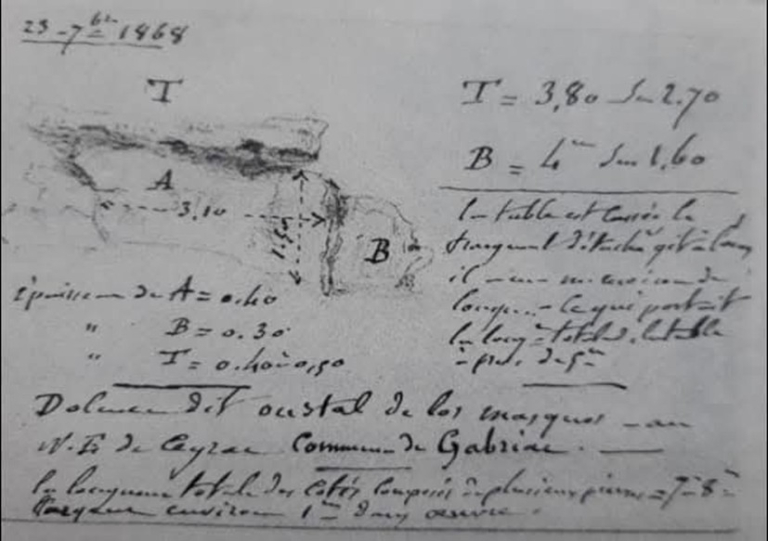 23 - 7bre 1868
T
T = 3,80 sur 2.70
B = 4m sur 1,60
A
3,10
1,50
B
la table est cassée le
fragment détaché gît à
il
longueur - ce qui portait
la longr totale de la table
à près de 5m
Épaisseur de A = 0.40
" B = 0.30
" T = 0.40 à 0,50
Dolmen dit oustal de los masquos - au
N.E. de Ceyrac Commune de Gabriac. —
la longueur totale des côtés composés de plusieurs pierres = 7 à 8m
largeur environ 1m dans œuvre.